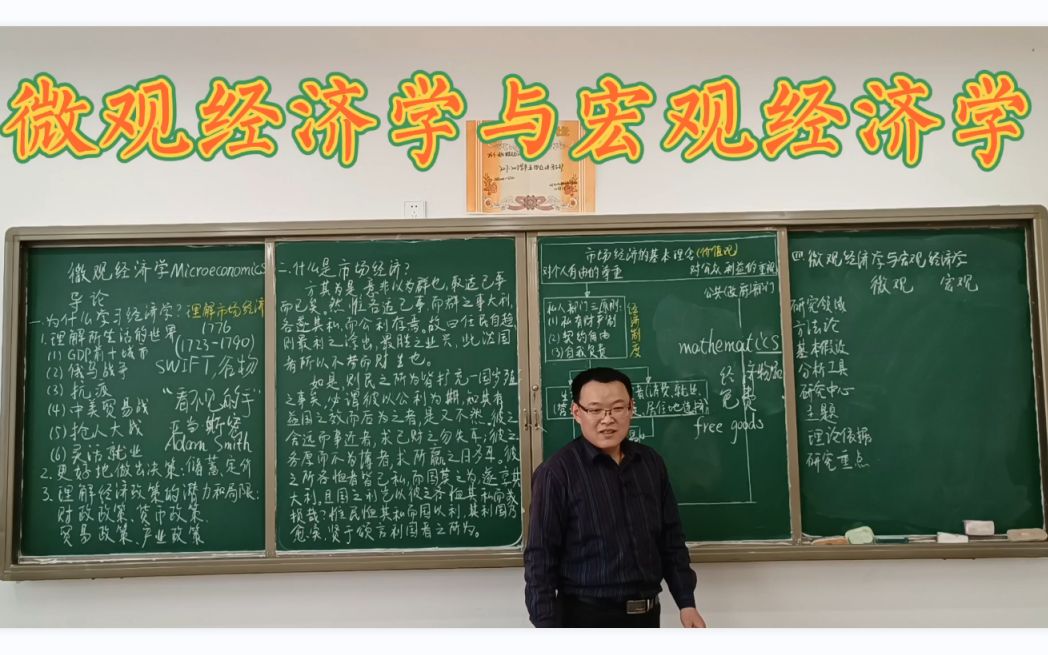 微观经济学与宏观经济学
微观经济学Microeconomics
导论
一.为什么学习经济学?理解市场经济
1.理解所生活的世界
1776
(1723-1790)
(1) GDP前十城市
SWIFT,谷物
(2) 俄乌战争
(3) 抗疫
"看不见的手"
(4) 中美贸易战
(5) 抢人大战
亚当斯密
Adam Smith
(6) 灵活就业
2.更好地做出决策:储蓄、定价
3.理解经济政策的潜力和局限:
财政政策、货币政策、
贸易政策、产业政策
二.什么是市场经济?
方其为是,吾非以为群也,取适己事
而已矣。然,惟各适己事而群之事大利,
各遂其私,而公利存焉。故曰任民自趋,
则最利之涂出,
有所以不劳而财生也。
如是,则民之所为皆扩充一国步强
之事矣。
益国之效而后为之者,是又不然。彼之
舍远而事近者,求己财之勿失耳;彼之
务厚而不为薄者,求所赢之日多耳。彼
之所各恒者皆己私,而国莫之为,遂
大利,且国之利
损哉?惟民恒其私而国以利,其利国乃
愈实,贤于领言利国者之所为。
市场经济的基本理念(价值观)
对个人自由的尊重
对公众利益的重视
公共(政府)部门
私人部门三原则:
(1)私有财产制
(2)契约自由
(3)自我负责
经济制度
mathematics
免费
free goods
居住地选择)
四 微观经济学与宏观经济学
微观 宏观
研究领域
方法论
基本假设
分析工具
研究中心
主题
理论依据
研究重点